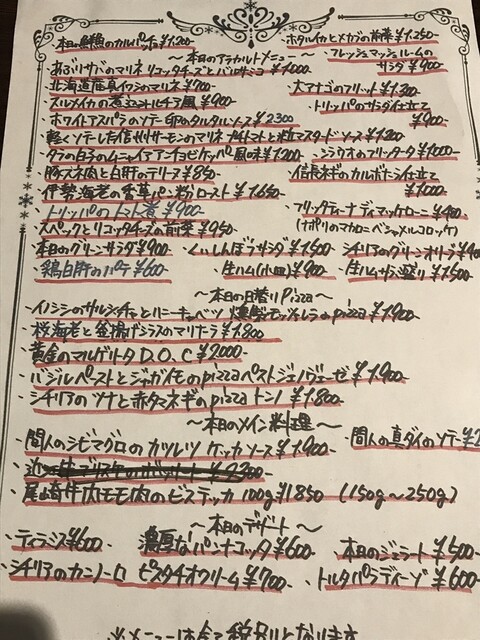 ・本日鮮魚のカルパッチョ ¥1.200-
・ホタルイカとメカブの前菜 ¥1.250-
～本日のアラカルトメニュー～
・フレッシュマッシュルームの
サラダ ¥900-
・あぶりサバのマリネ リコッタチーズとバルサミコ ¥1000
・北海道産真イワシのマリネ ¥900
・大アナゴのフリット ¥1.300
・スルメイカの煮込み 風 ¥900
・トリッパのサラダ仕立て
¥900
・ホワイトアスパラのソテー 卵のタルタルソース ¥2300
・軽くソテーした信州サーモンのマリネ プチトマトと粒マスタードソース ¥1.300
・タラの白子のムニャイア アンチョビケッパー風味 ¥1200
・シラウオのフリッタータ ¥1000
・豚スネ肉と白肝のテリーヌ ¥850
・信長ネギのカルボナーラ仕立て
¥1.000
・伊勢海老の香草パン粉ロースト ¥1.650
・トリッパのトマト煮 ¥900
・フリッタティーナ ディ マッケローニ ¥400
(ナポリのマカローニ ベシャメルコロッケ)
・スペックとリコッタチーズの前菜 ¥950
・本日のグリーンサラダ ¥900
・くいしんぼうサラダ ¥1500
・シチリアのグリーンオリーブ
・鶏白肝のパテ ¥600
・生ハム(小皿) ¥900
・生ハム 盛り ¥1500
～本日の日替りpizza～
・イノシシのサルシッチャと 燻製モッツァレラのpizza ¥1.900
・桜海老と釜揚げシラスのマリナーラ ¥1.800
・黄金のマルゲリータ D.O.C ¥2000
・バジルペーストとジャガイモのpizza ペストジェノヴェーゼ ¥1.900
・シチリアのツナと赤タマネギのpizza トンノ ¥1.800
～本日のメイン料理～
・間人のシビマグロのカツレツ ケッカソース ¥1.900
・間人の真ダイのソテー
・尾崎牛内モモ肉のビステッカ 100g¥1850 (150g～250g)
～本日のデザート～
・ティラミス ¥600
濃厚なパンナコッタ ¥600
・本日のジェラート ¥500
・シチリアのカンノーロ ピスタチオクリーム ¥700
・トルタパラディーゾ ¥600
※メニューは全て税別となります